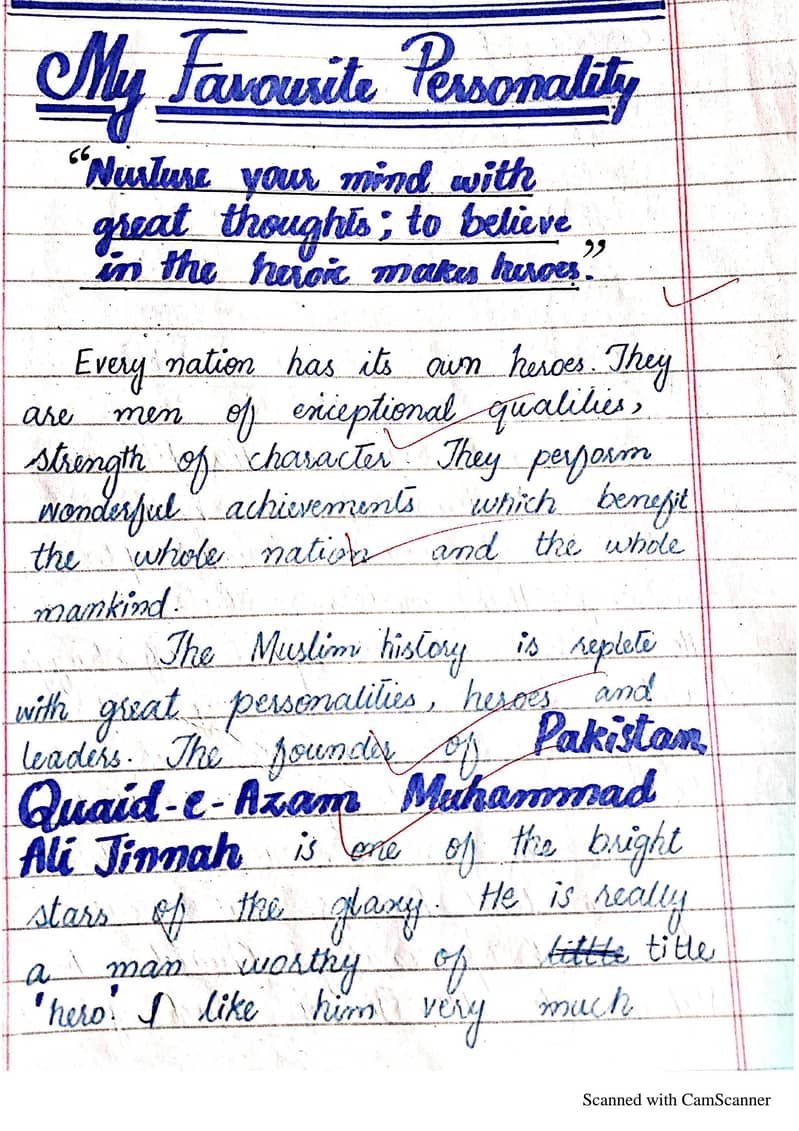 My Favourite Personality
“Nurture your mind with
great thoughts; to believe
in the heroic makes heroes.”
Every nation has its own heroes. They
are men of exceptional qualities,
strength of character. They perform
wonderful achievements which benefit
the whole nation and the whole
mankind.
The Muslim history is replete
with great personalities, heroes and
leaders. The founder of Pakistan
Quaid-e-Azam Muhammad
Ali Jinnah is one of the bright
stars of the glaxy. He is really
a man worthy of little title
'hero'. I like him very much
Scanned with CamScanner